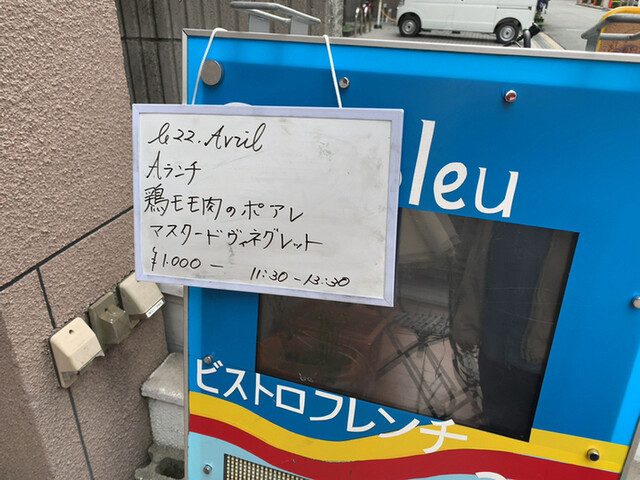 le 22. Avril
Aランチ
鶏モモ肉のポアレ
マスタードヴィネグレット
¥1.000－ 11:30-13:30
bleu
ビストロフレンチ